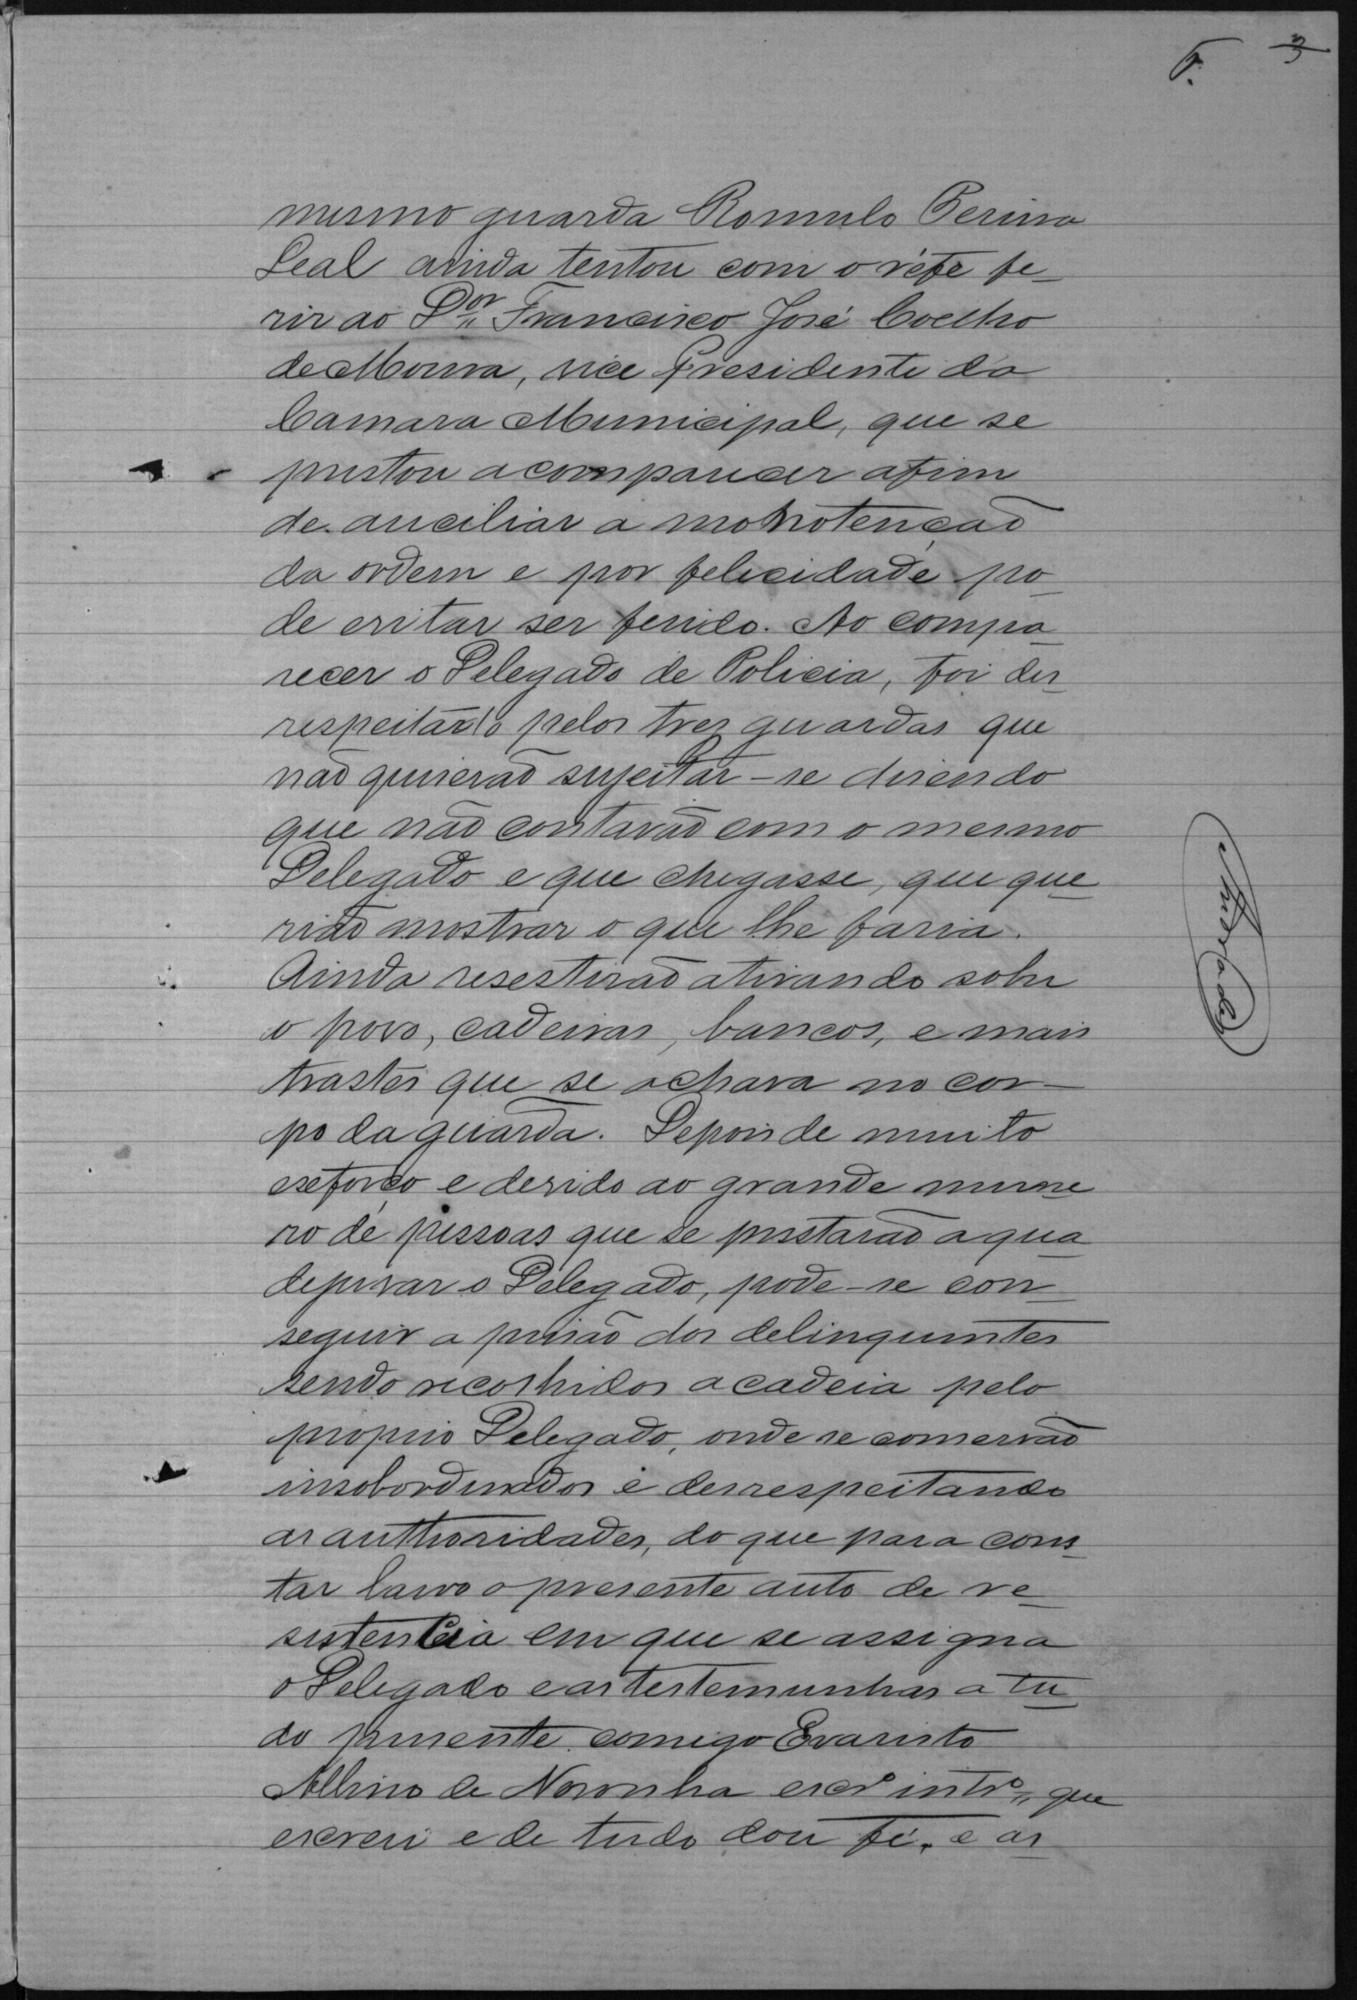 3
mesmo guarda Romulo Perina
Leal ainda tentou com o refe fe_
rir ao Dor Francisco José Coelho
de Moura, vice Presidente da
Camara Municipal, que se
prestou acompanccer afim
de auciliar a manotenção
da ordem e por felicidade po_
de evitar ser ferido. Ao compa_
recer o Delegado de Policia, foi des_
respeitado pelos tres guardas que
não quiserão sujeitar-se disendo
que não contavão com o mesmo
Delegado e que chegasse, que que_
rião mostrar o que lhe faria.
Ainda resestirão atirando sobre
o povo, cadeiras, bancos, e mais
trastes que se achava no cor_
po da guarda. Depois de muito
exforço e devido ao grande nume_
ro de pessoas que se prestarão a qua_
dejuvar o Delegado, pode-se con_
seguir a prisão dos delinquentes
sendo recolhidos a cadeia pelo
proprio Delegado, onde se conservão
insobordinados e desrespeitando
as authoridades, do que para cons_
tar lavro o presente auto de re_
sistencia em que se assigna
o Delegado e as testemunhas a tu_
do presente comigo Evaristo
Albino de Noronha escro intro, que
escrevi e de tudo dou fé. e as